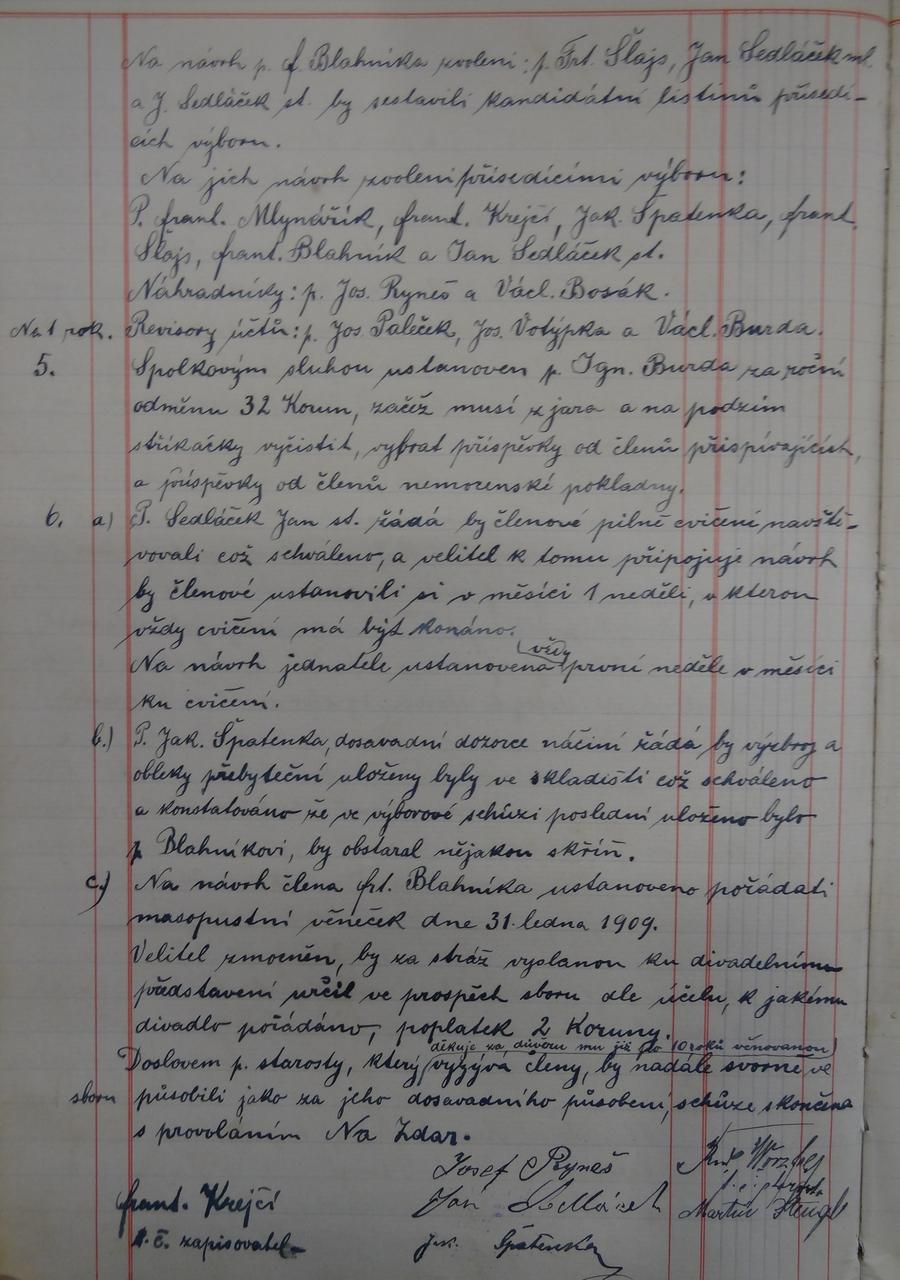 Na návrh p. f. Blahníka zvoleni: p. Frt. Šlajs, Jan Sedláček ml.
a J. Sedláček st. by sestavili kandidátní listinu přísedí-
cích výboru.
Na jich návrh zvoleni přísedícími výboru:
P. frant. Mlynářík, frant. Krejčí, Jak. Špatenka, frant.
Šlajs, frant. Blahník a Jan Sedláček st.
Náhradníky: p. Jos. Ryneš a Václ. Bosák.
Na 1 rok. Revisory účtů: p. Jos Paleček, Jos. Votýpka a Václ. Burda.
5. Spolkovým sluhou ustanoven p. Ign. Burda za roční
odměnu 32 Korun, začež musí z jara a na podzim
stříkačky vyčistit, vybrat příspěvky od členů přispívajících,
a příspěvky od členů nemocenské pokladny.
6. a) P. Sedláček Jan st. žádá by členové pilně cvičení navště-
vovali což schváleno, a velitel k tomu připojuje návrh
by členové ustanovili si v měsíci 1 neděli, v kterou
vždy cvičení má být konáno.
Na návrh jednatele ustanovena vždy první neděle v měsíci
ku cvičení.
b.) P. Jak. Špatenka, dosavadní dozorce náčiní žádá by výzbroj a
obleky přebyteční uloženy byly ve skladišti což schváleno
a konstatováno že ve výborové schůzi poslední uloženo bylo
p Blahníkovi, by obstaral nějakou skříň.
c.) Na návrh člena frt. Blahníka ustanoveno pořádati
masopustní věneček dne 31. ledna 1909.
Velitel zmocněn, by za stráž vyslanou ku divadelnímu
představení určil ve prospěch sboru dle účelu, k jakému
divadlo pořádáno, poplatek 2 Koruny.
děkuje za důvěru mu již po 10 roků věnovanou
Doslovem p. starosty, který vyzývá členy, by nadále svorně ve
sboru působili jako za jeho dosavadního působení, schůze skončena
s provoláním Na Zdar.
Josef Ryneš
frant. Krejčí Jan Sedláček Martin
t. č. zapisovatel Jak. Špatenka